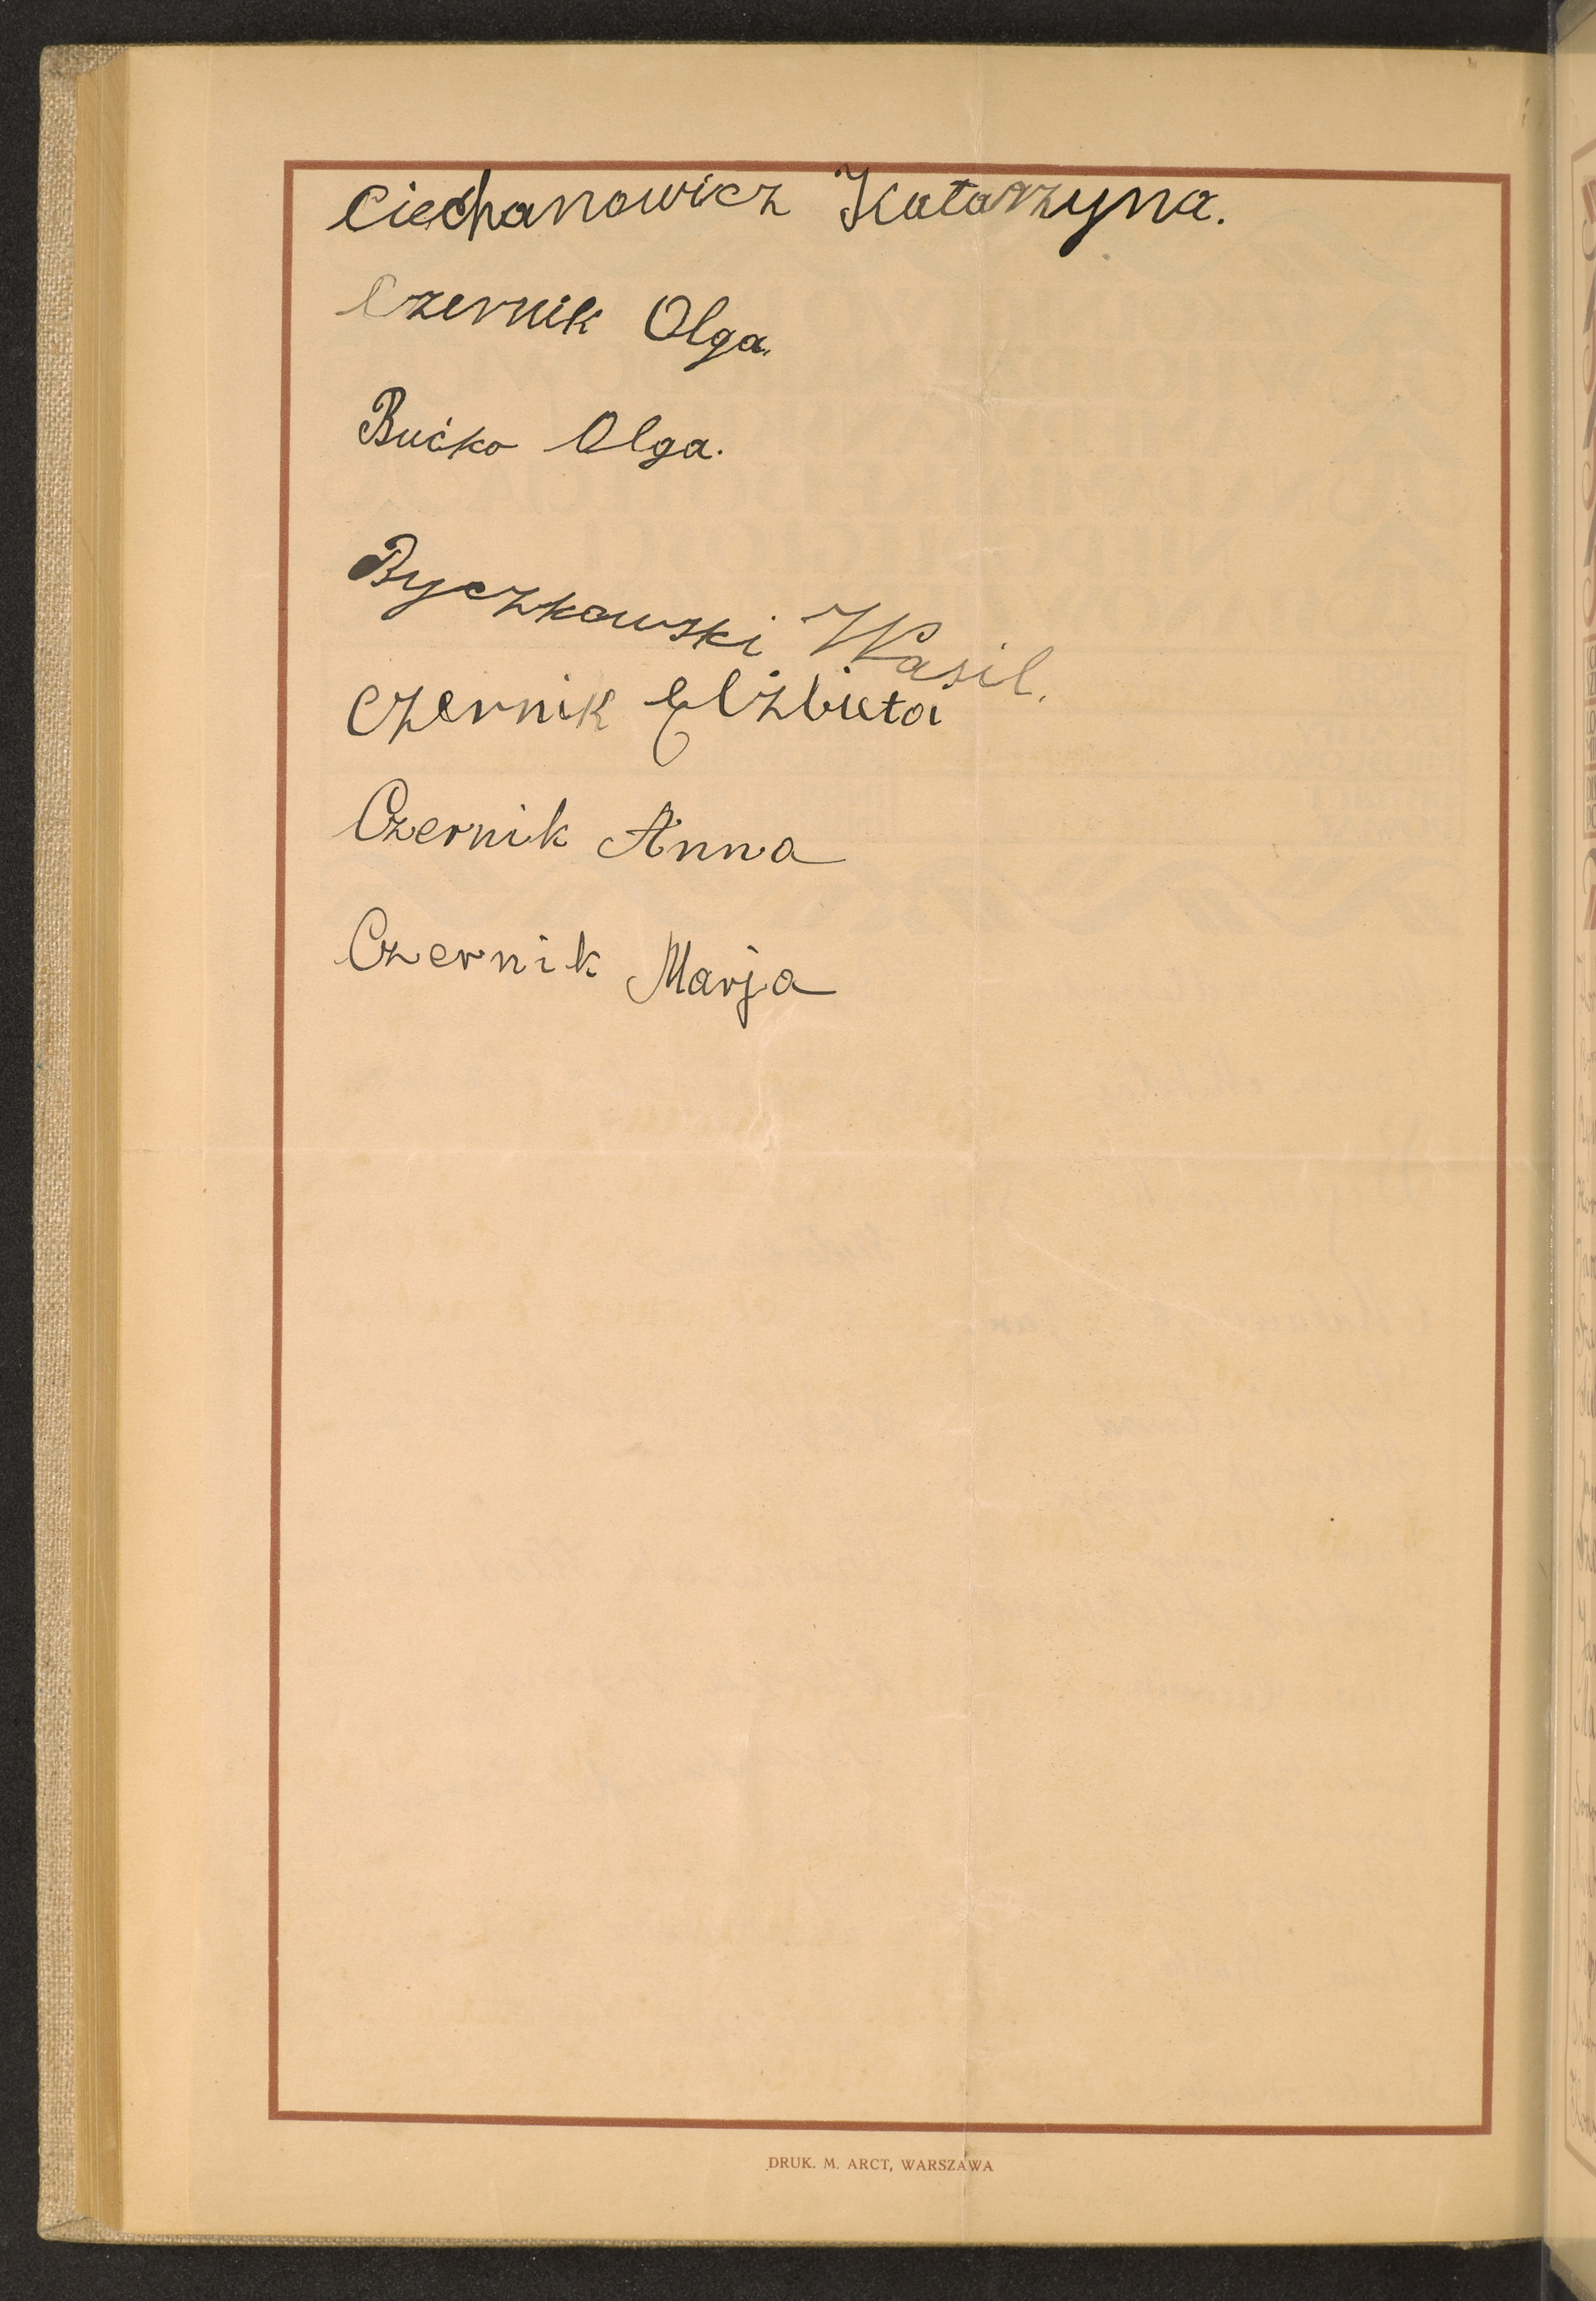 Ciechanowicz Katarzyna.
Czernik Olga.
Bućko Olga.
Byczkowski Wasil.
Czernik Elżbieta
Czernik Anna
Czernik Marja
DRUK. M. ARCT, WARSZAWA